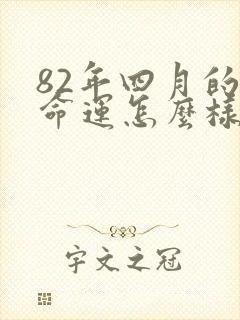 82年四月的
命運怎麼樣
宇文之冠